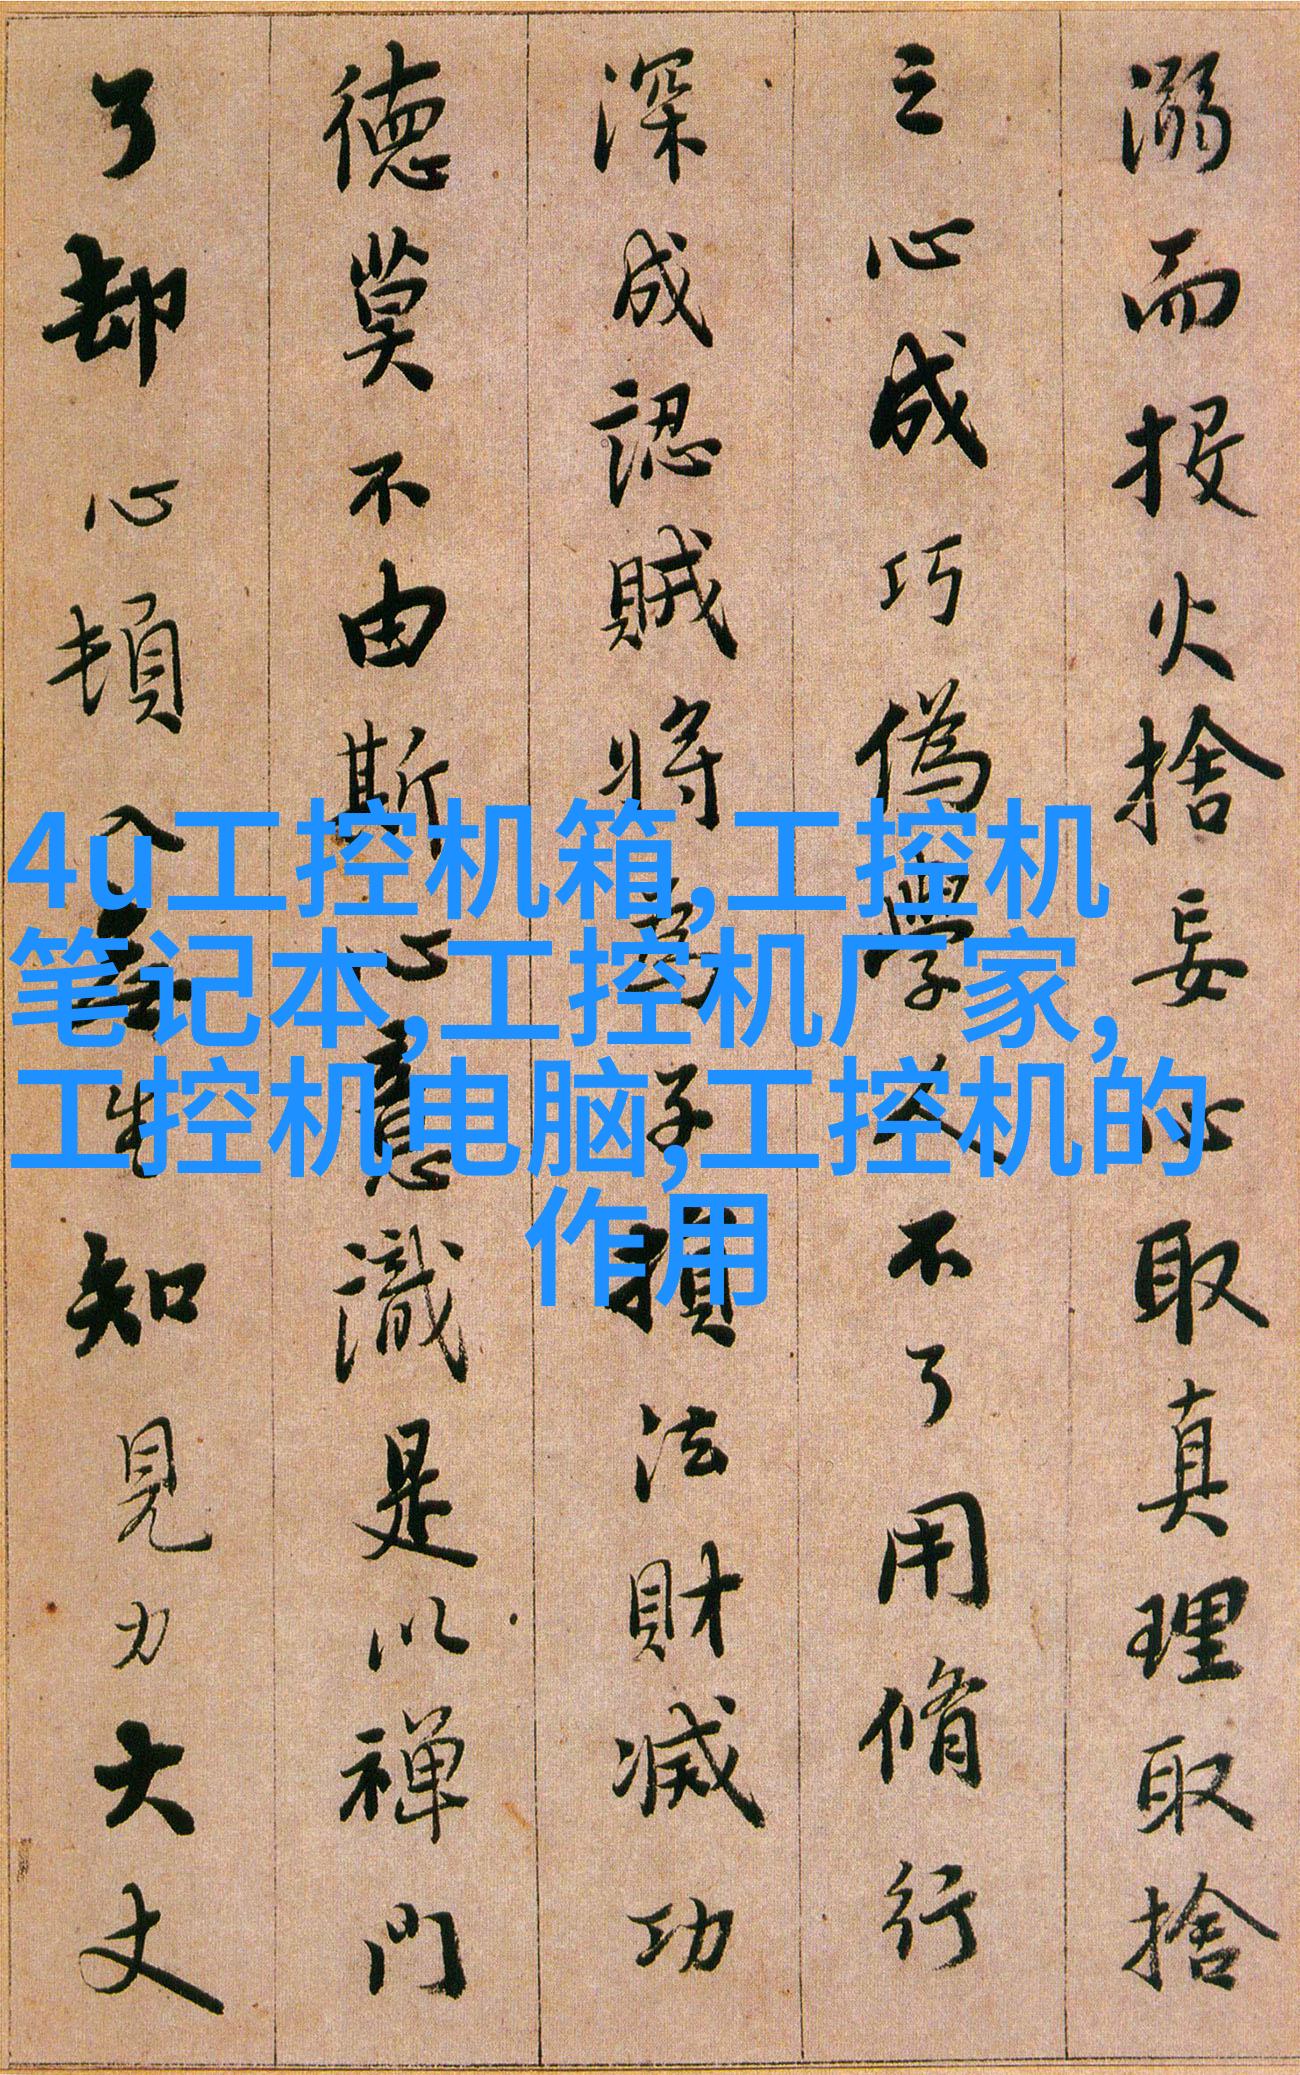 溺而投火捨妄心取真理取捨
之心成巧偽學人不了用脩行
深成認賊將為子損法財滅功
德莫不由斯心意識是以禪門
了却心頓入無生知見力大丈
4u工控机箱,工控机
笔记本,工控机厂家,
工控机电脑,工控机的
作用